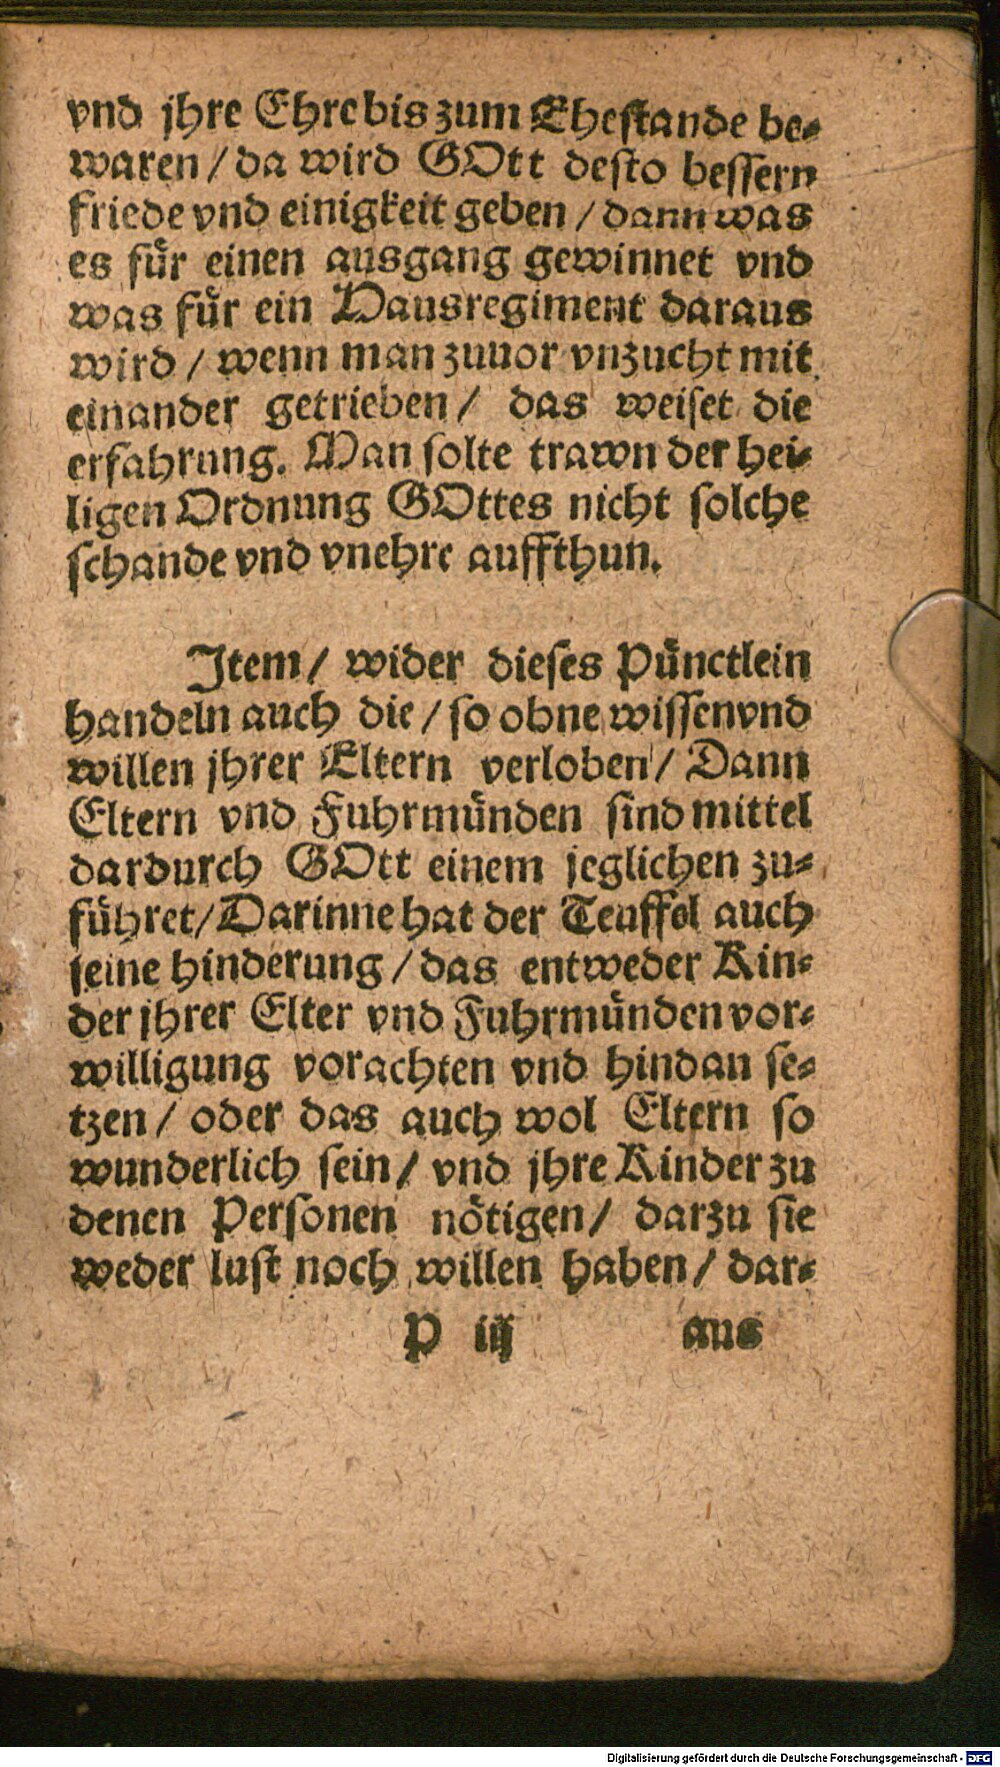 vnd jhre Ehre bis zum Ehestande be⸗
waren / da wird GOtt desto bessern
friede vnd einigkeit geben / dann was
es für einen ausgang gewinnet vnd
was für ein Hausregiment daraus
wird / wenn man zuuor vnzucht mit
einander getrieben / das weiset die
erfahrung. Man solte trawn der hei⸗
ligen Ordnung GOttes nicht solche
schande vnd vnehre auffthun.
Item / wider dieses Pünctlein
handeln auch die / so ohne wissen vnd
willen jhrer Eltern verloben / Dann
Eltern vnd Fuhrmünden sind mittel
dardurch GOtt einem jeglichen zu⸗
führet / Darinne hat der Teuffel auch
seine hinderung / das entweder Kin⸗
der jhrer Elter vnd Fuhrmünden vor⸗
willigung vorachten vnd hindan se⸗
tzen / oder das auch wol Eltern so
wunderlich sein / vnd jhre Kinder zu
denen Personen nötigen / darzu sie
weder lust noch willen haben / dar⸗
P iij aus
Digitalisierung gefördert durch die Deutsche Forschungsgemeinschaft - DFG